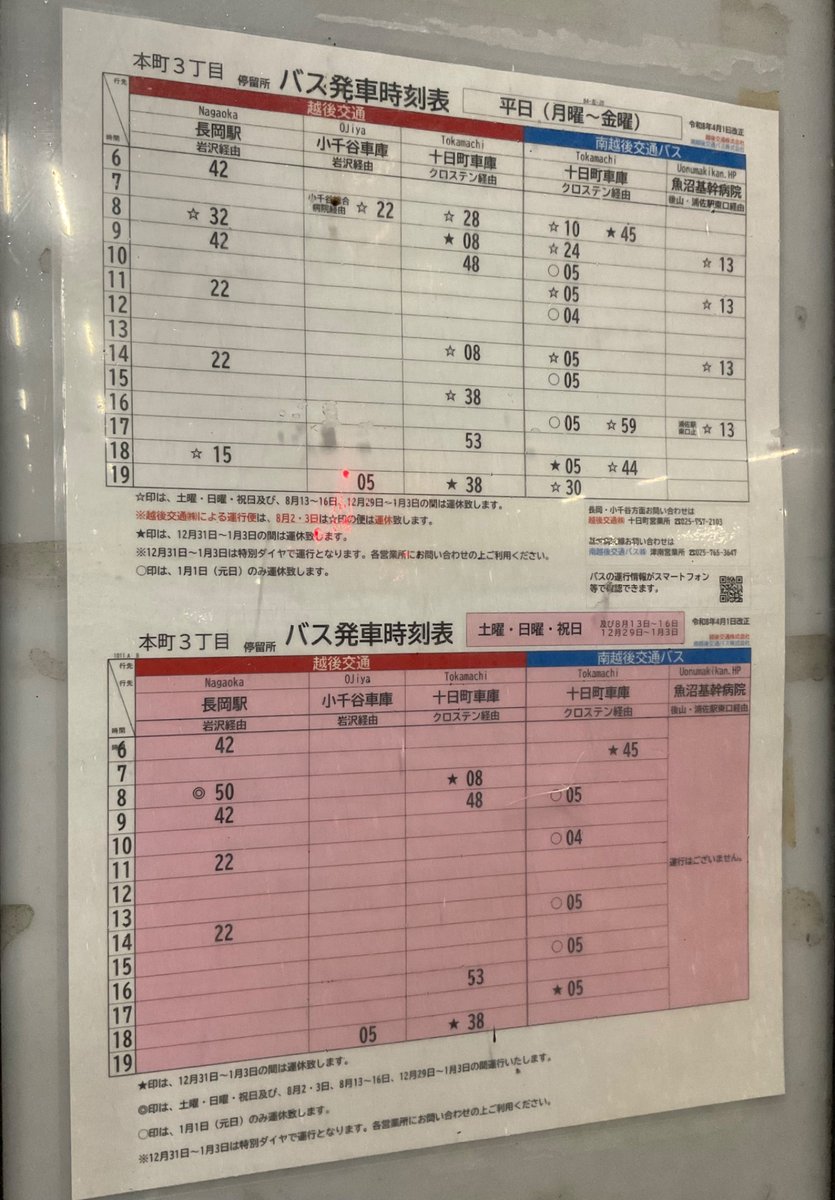 本町3丁目 停留所 バス発車時刻表 平日（月曜～金曜） 令和8年4月1日改正
越後交通株式会社
南越後交通バス株式会社
行先 越後交通 南越後交通バス
Nagaoka OJiya Tokamachi Tokamachi Uonumakikan.HP
長岡駅 小千谷車庫 十日町車庫 十日町車庫 魚沼基幹病院
時間 岩沢経由 岩沢経由 クロステン経由 クロステン経由 後山・浦佐駅東口経由
6 42
7 小千谷総合病院経由 ☆22 ☆28 ☆10 ★45
8 ☆32 ★08 ☆24 ☆13
9 42 48 ○05
10 ☆05 ☆13
11 22 ○04
12
13 ☆08 ☆05 ☆13
14 22 ○05
15 ☆38
16 ○05 ☆59 浦佐駅東口止 ☆13
17 53
18 ☆15 ★05 ☆44
19 05 ★38 ☆30
☆印は、土曜・日曜・祝日及び、8月13～16日、12月29日～1月3日の間は運休致します。
※越後交通㈱による運行便は、8月2・3日は☆印の便は運休致します。
★印は、12月31日～1月3日の間は運休致します。
※12月31日～1月3日は特別ダイヤで運行となります。各営業所にお問い合わせの上ご利用ください。
○印は、1月1日（元日）のみ運休致します。
長岡・小千谷方面お問い合わせは
越後交通㈱ 十日町営業所 ☎025-757-2103
南越後交通バス㈱ 津南営業所 ☎025-765-3647
バスの運行情報がスマートフォン
等で確認できます。
本町3丁目 停留所 バス発車時刻表 土曜・日曜・祝日 及び8月13日～16日 12月29日～1月3日 令和8年4月1日改正
越後交通株式会社
南越後交通バス株式会社
行先 越後交通 南越後交通バス
行先 Nagaoka OJiya Tokamachi Tokamachi Uonumakikan.HP
長岡駅 小千谷車庫 十日町車庫 十日町車庫 魚沼基幹病院
時間 岩沢経由 岩沢経由 クロステン経由 クロステン経由 後山・浦佐駅東口経由
6 42 ★45
7 ★08
8 ◎50 48 ○05
9 42
10 ○04
11 22 運行はございません。
12
13 ○05
14 22
15 ○05
16 53
17 ★05
18 05 ★38
19
★印は、12月31日～1月3日の間は運休致します。
◎印は、土曜・日曜・祝日及び、8月2・3日、8月13～16日、12月29日～1月3日の間運行いたします。
○印は、1月1日（元日）のみ運休致します。
※12月31日～1月3日は特別ダイヤで運行となります。各営業所にお問い合わせの上ご利用ください。